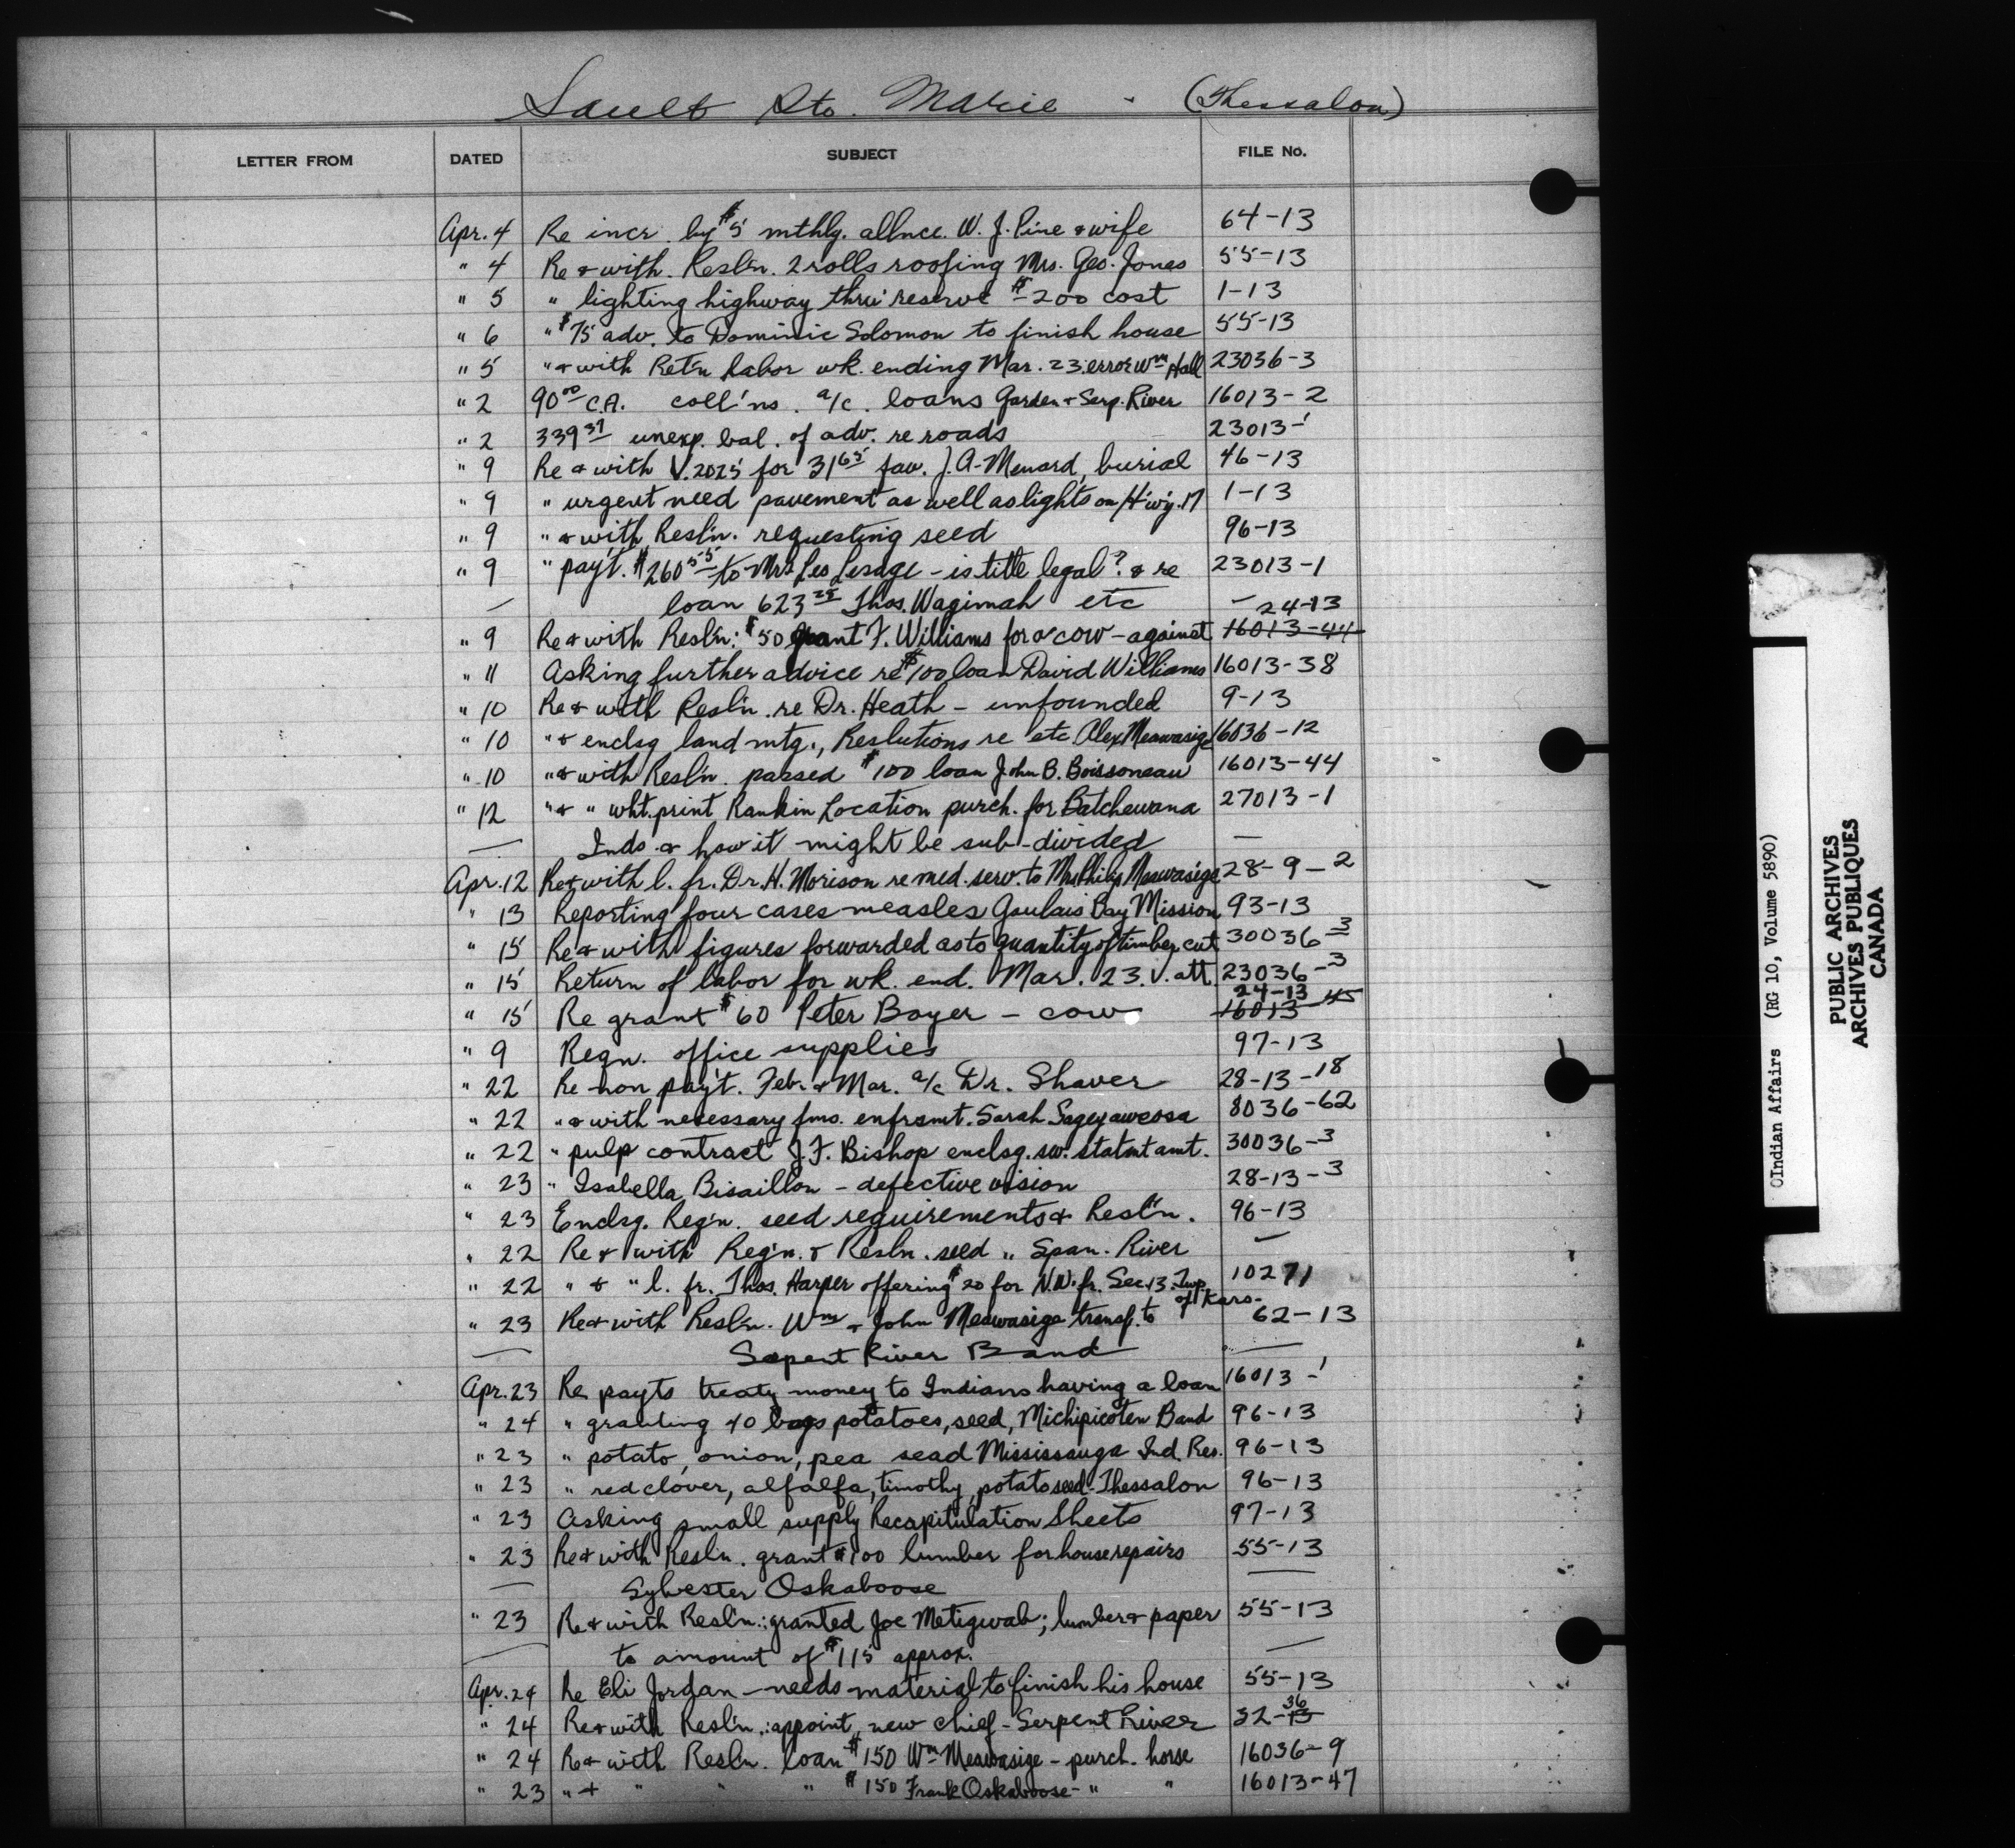 Sault Ste. Marie - (Thessalon)
LETTER FROM DATED SUBJECT FILE No.
Apr. 4 Re incr. by $5 mthly. allnce. W. J. Pine & wife 64-13
" 4 Re & with Resl'n. 2 rolls roofing Mrs. Geo. Jones 55-13
" 5 " lighting highway thru' reserve $200 cost 1-13
" 6 " $75 adv. to Dominic Solomon to finish house 55-13
" 5 " & with Ret'n labor wk. ending Mar. 23. error Wm Hall 23036-3
" 2 90.00 C.A. coll'ns. a/c. loans Garden & Serp. River 16013-2
" 2 339.37 unexp. bal. of adv. re roads 23013-1
" 9 Re & with V. 2025 for 31.65 fav. J. A. Menard, burial 46-13
" 9 " urgent need pavement as well as lights on H'w'y. 17 1-13
" 9 " & with Resl'n. requesting seed 96-13
" 9 " pay't. $260.55 to Mrs Leo Lesage - is title legal? & re 23013-1
— loan 623.25 Thos. Wagimah etc — 24-13
" 9 Re & with Resl'n: $50 grant F. Williams for a cow - against 16013-44
" 11 Asking further advice re $100 loan David Williams 16013-38
" 10 Re & with Resl'n. re Dr. Heath - unfounded 9-13
" 10 " & enclsg land mtg., Reslutions re etc Alex Meawasige 16036-12
" 10 " & with Resl'n. passed $100 loan John B. Boissoneau 16013-44
" 12 " & " wht. print Rankin Location purch. for Batchewana 27013-1
— Inds & how it might be sub-divided —
Apr. 12 Re & with l. fr. Dr. H. Morison re med. serv. to Mrs Philip Meawasige 28-9-2
" 13 Reporting four cases measles Goulais Bay Mission 93-13
" 15 Re & with figures forwarded as to quantity of timber cut 30036-3
" 15 Return of labor for wk. end. Mar. 23. V. att. 23036-3
24-13
" 15 Re grant $60 Peter Boyer - cow 16013-45
" 9 Reqn. office supplies 97-13
" 22 Re non pay't. Feb. & Mar. a/c Dr. Shaver 28-13-18
" 22 " & with necessary fms. enfrsmt. Sarah Sageyaweosa 8036-62
" 22 " pulp contract J. F. Bishop enclsg. sw. statmt amt. 30036-3
" 23 " Isabella Bisaillon - defective vision 28-13-3
" 23 Enclsg. Req'n. seed requirements & Resl'n. 96-13
" 22 Re & with Req'n. & Resln. seed " Span. River —
" 22 " & " l. fr. Thos. Harper offering $20 for N.W. fr. Sec. 13. Twp. 10271
of Kars.
" 23 Re & with Resl'n. Wm & John Meawasige transf. to 62-13
— Serpent River Band —
Apr. 23 Re payts treaty money to Indians having a loan 16013-1
" 24 " granting 40 bags potatoes, seed, Michipicoten Band 96-13
" 23 " potato, onion, pea seed Mississauga Ind. Res. 96-13
" 23 " red clover, alfalfa, timothy, potato seed - Thessalon 96-13
" 23 Asking small supply Recapitulation Sheets 97-13
" 23 Re & with Resl'n. grant $100 lumber for house repairs 55-13
— Sylvester Oskaboose —
" 23 Re & with Resl'n.: granted Joe Metigwab; lumber & paper 55-13
— to amount of $115 approx. —
Apr. 24 Re Eli Jordan - needs material to finish his house 55-13
36
" 24 Re & with Resl'n.: appoint, new chief - Serpent River 32-13
" 24 Re & with Resln. loan $150 Wm Meawasige - purch. horse 16036-9
" 23 " & " " " $150 Frank Oskaboose - " " 16013-47
OIndian Affairs (RG 10, Volume 5890)
PUBLIC ARCHIVES
ARCHIVES PUBLIQUES
CANADA